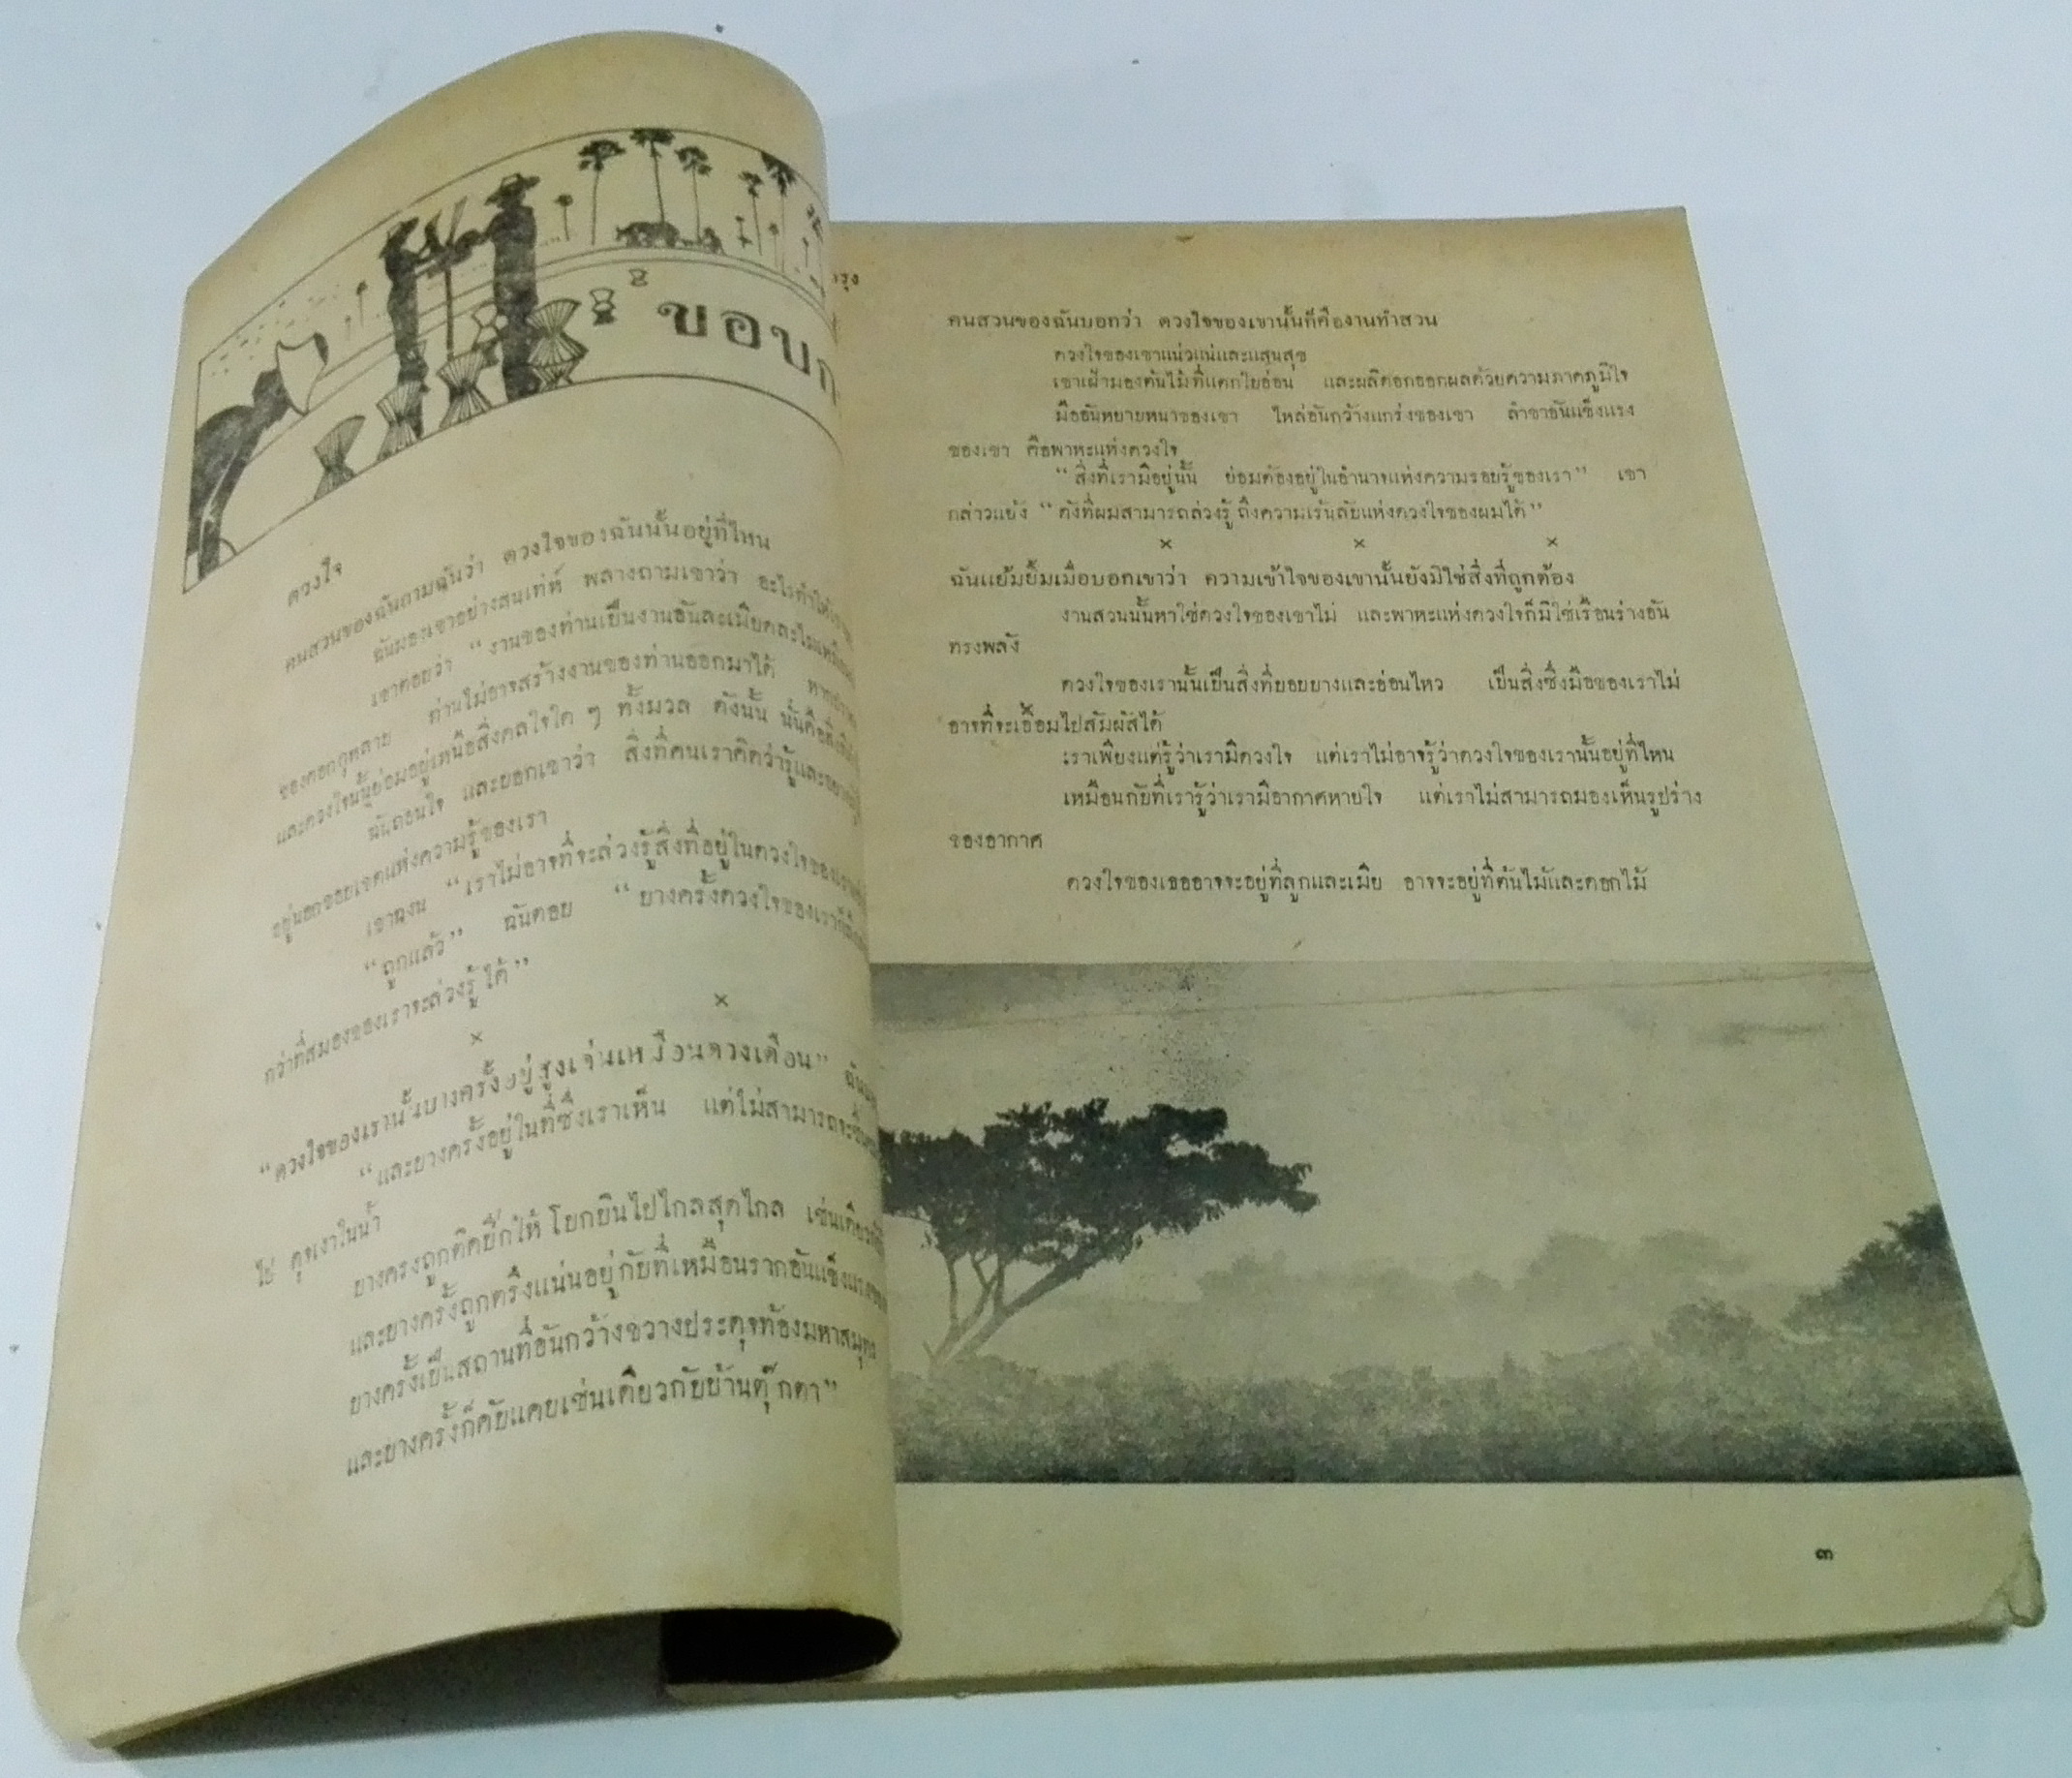 ขอบก
ดวงใจ
คนสวนของฉันถามฉันว่า ดวงใจของฉันนั้นอยู่ที่ไหน
ฉันมองเขาอย่างสนเท่ห์ พลางถามเขาว่า อะไรทำให้
เขาตอบว่า “งานของท่านเป็นงานอันละเมียดละไม
ท่านไม่อาจสร้างงานของท่านออกมาได้
ของดอกกุหลาบ
และดวงใจนั้นย่อมอยู่เหนือสิ่งดลใจใด ๆ ทั้งมวล ดังนั้น นั่นคือ
ฉันถอนใจ และบอกเขาว่า สิ่งที่คนเราคิดว่ารู้และ
อยู่นอกขอบเขตแห่งความรู้ของเรา
เขาฉงน “เราไม่อาจที่จะล่วงรู้สิ่งที่อยู่ในดวงใจของเรา
“ถูกแล้ว” ฉันตอบ “บางครั้งดวงใจของเราก็
กว่าที่สมองของเราจะล่วงรู้ได้”
× ×
“ดวงใจของเรานั้นบางครั้งอยู่สูงเจ่นเหมือนดวงเดือน”
“และบางครั้งอยู่ในที่ซึ่งเราเห็น แต่ไม่สามารถจะ
ไป ดุจเงาในน้ำ
บางครั้งถูกตีดยึกให้โยกยินไปไกลสุดไกล เช่นเดียว
และบางครั้งถูกตรึงแน่นอยู่กับที่เหมือนรากอันแข็งแรง
บางครั้งเป็นสถานที่อันกว้างขวางประดุจท้องมหาสมุทร
และบางครั้งก็คับแคบเช่นเดียวกับบ้านตุ๊กตา”
รุง
คนสวนของฉันบอกว่า ดวงใจของเขานั้นก็คืองานทำสวน
ดวงใจของเขาแน่วแน่และแสนสุข
เขาเฝ้ามองต้นไม้ที่แตกใบอ่อน และผลิดอกออกผลด้วยความภาคภูมิใจ
มืออันหยาบหนาของเขา ไหล่อันกว้างแกร่งของเขา ลำขาอันแข็งแรง
ของเขา คือพาหะแห่งดวงใจ
“สิ่งที่เรามีอยู่นั้น ย่อมต้องอยู่ในอำนาจแห่งความรอบรู้ของเรา” เขา
กล่าวแย้ง “ดังที่ผมสามารถล่วงรู้ถึงความเร้นลับแห่งดวงใจของผมได้”
× × ×
ฉันแย้มยิ้มเมื่อบอกเขาว่า ความเข้าใจของเขานั้นยังมิใช่สิ่งที่ถูกต้อง
งานสวนนั้นหาใช่ดวงใจของเขาไม่ และพาหะแห่งดวงใจก็มิใช่เรือนร่างอัน
ทรงพลัง
ดวงใจของเรานั้นเป็นสิ่งที่บอบบางและอ่อนไหว เป็นสิ่งซึ่งมือของเราไม่
อาจที่จะเอื้อมไปสัมผัสได้
เราเพียงแต่รู้ว่าเรามีดวงใจ แต่เราไม่อาจรู้ว่าดวงใจของเรานั้นอยู่ที่ไหน
เหมือนกับที่เรารู้ว่าเรามีอากาศหายใจ แต่เราไม่สามารถมองเห็นรูปร่าง
ของอากาศ
ดวงใจของเธออาจจะอยู่ที่ลูกและเมีย อาจจะอยู่ที่ต้นไม้และดอกไม้
๓